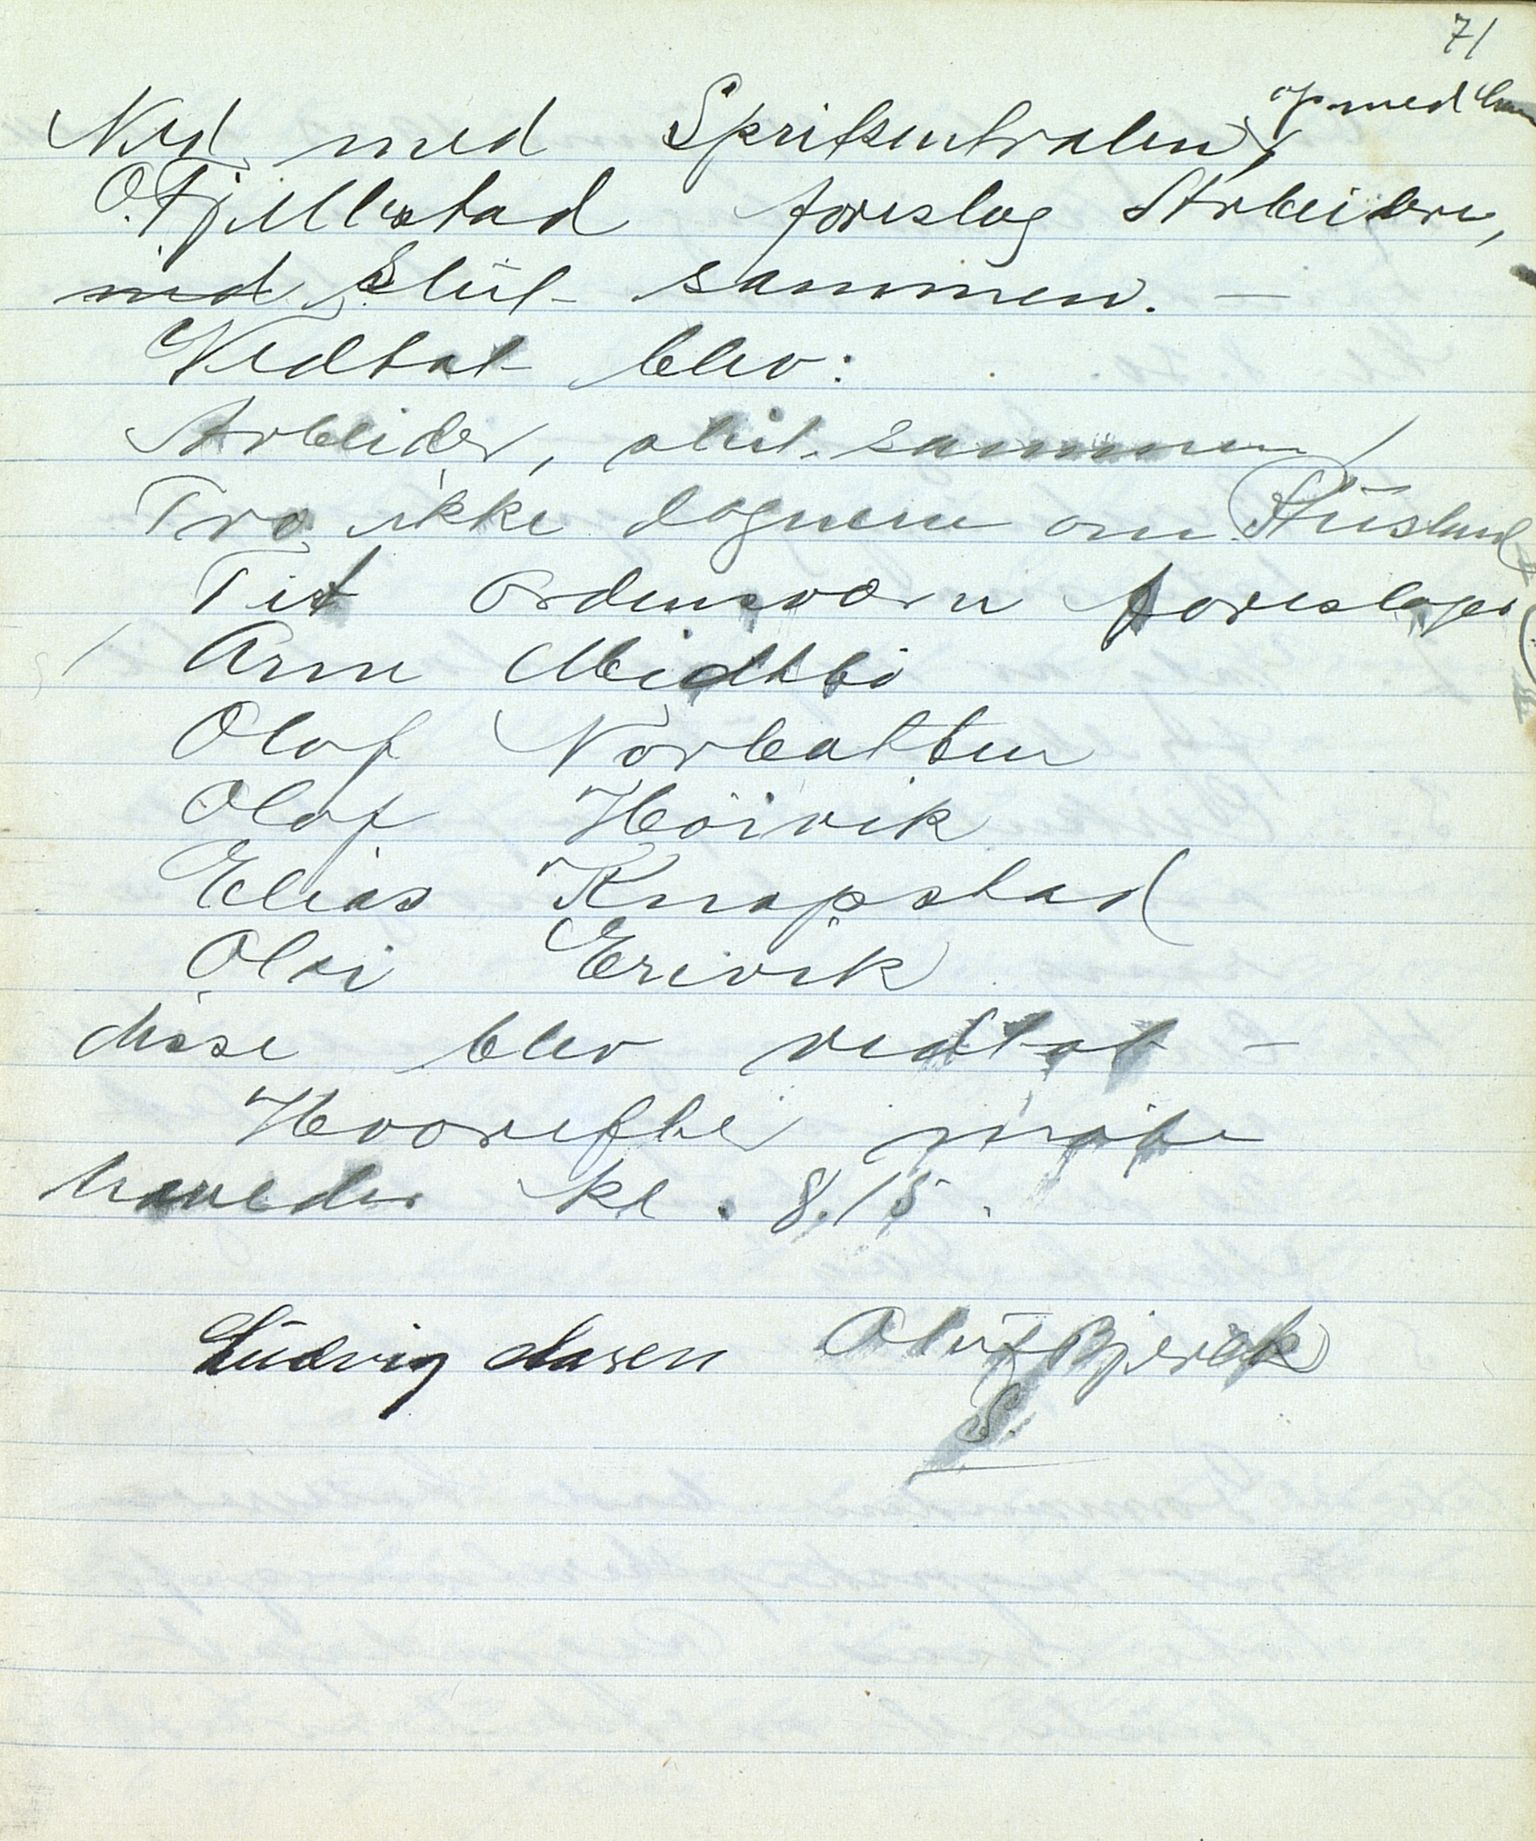 71
Ned med Spritsentralen, op med
O. Fjellestad foreslog Arbeidere,
med Slut sammen. —
Vedtat blev:
Arbeider, slut sammen
Tro ikke løgnene om Rusland
Til Ordensværn foreslages
Arne Midtbö
Olaf Norbotten
Olaf Höivik
Elias Knapstad
Olai Erivik
disse blev vedtat —
Hvorefter møte
heveder kl. 8.15.
Ludvig Aasen Oluf Bjerck
S.